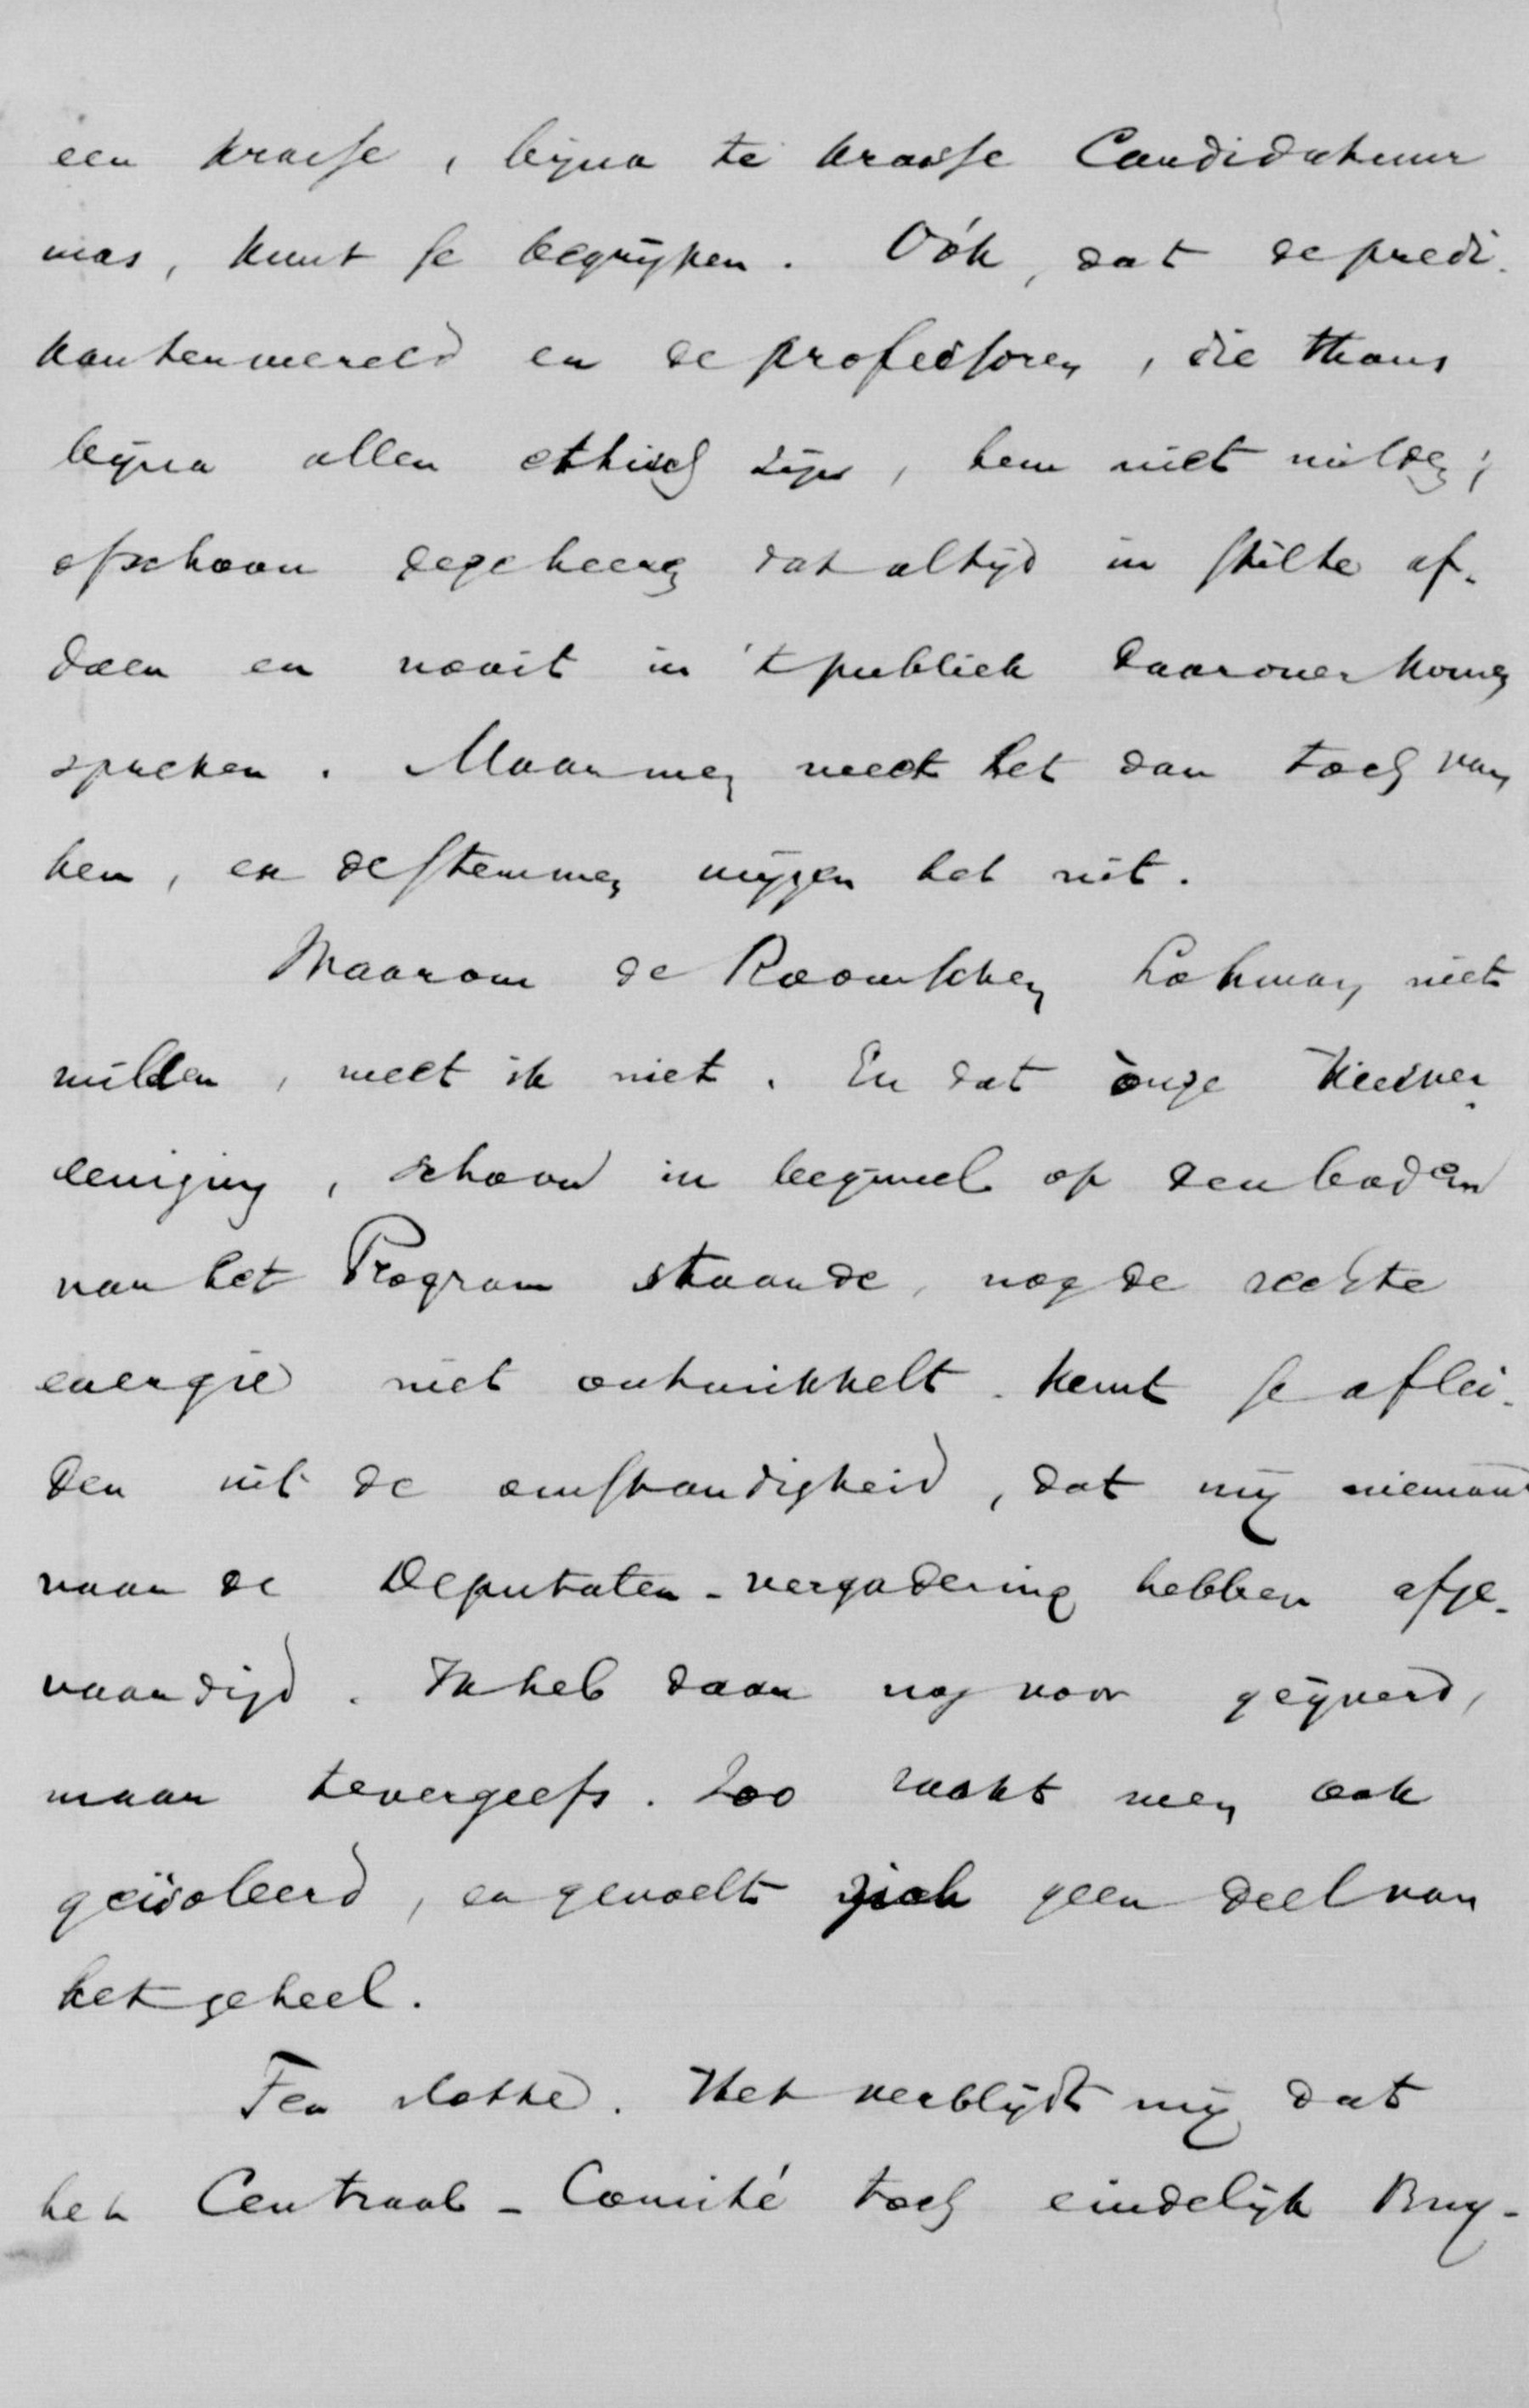 een krasse, bijna te krasse Candidatuur
was, kunt ge begrijpen. Oók, dat de predi-
kantenwereld en de professoren, die thans
bijna allen ethisch zijn, hem niet wilden;
ofschoon deze heeren dat altijd in stilte af-
doen en nooit in 't publiek daarover komen
spreken. Maar men weet het dan toch van
hen, en de stemmen wijzen het uit.
Waarom de Roomschen Lohman niet
wilden, weet ik niet. En dat ònze Kiesver-
eeniging, schoon in beginsel op den bodem
van het Program staande, nog de rechte
energie niet ontwikkelt. kunt ge aflei-
den uit de omstandigheid, dat wij niemand
naar de Deputaten-vergadering hebben afge-
vaardigd. Ik heb daar nog voor geijverd,
maar tevergeefs. Zoo raakt men ook
geïsoleerd, en gevoelt zich geen deel van
het geheel.
Ten slotte. Het verblijdt mij dat
het Centraal-Comité toch eindelijk Bruy-